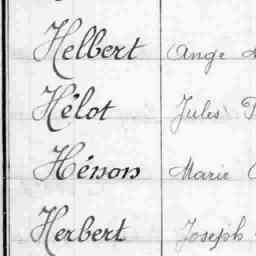 Helbert Ange
Hélot Jules
Hénon Marie
Herbert Joseph